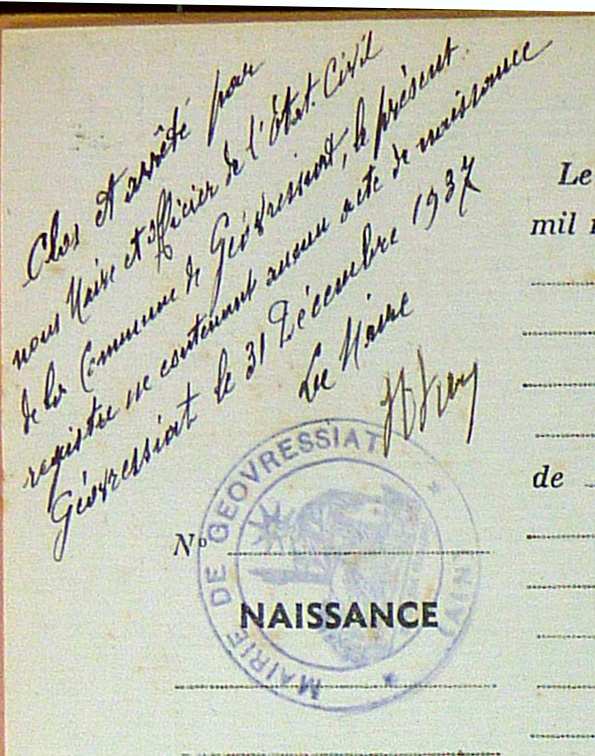 Clos et arrêté par
nous Maire et officier de l'Etat Civil
de la Commune de Géovressiat, le présent
registre ne contenant aucun acte de naissance
Géovressiat le 31 Décembre 1937
Le Maire
MAIRIE DE GEOVRESSIAT
(AIN)
No
NAISSANCE
Le
mil
de